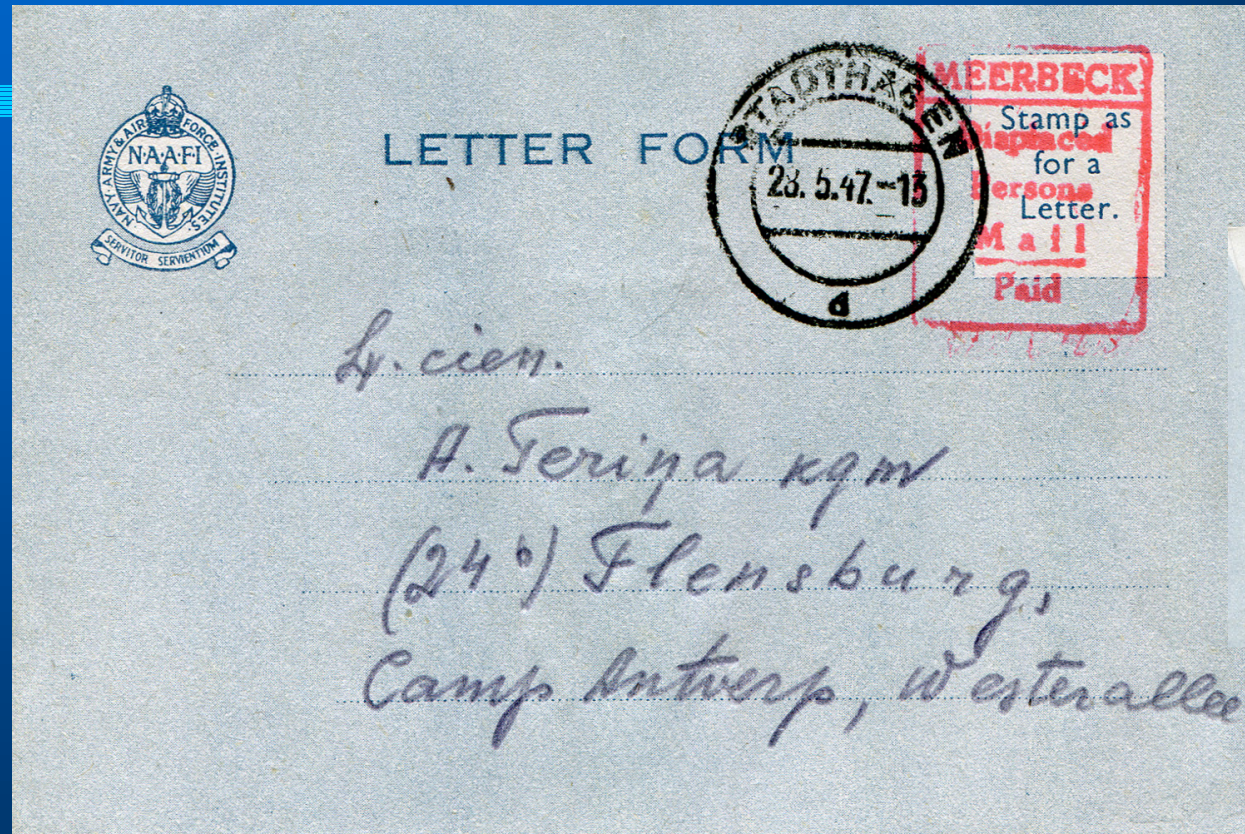 NAVY, ARMY & AIR FORCE INSTITUTES
N·A·A·F·I
SERVITOR SERVIENTIUM
LETTER FORM
STADTHAGEN
28. 5.47.-13
d
MEERBECK
Displaced
Persons
Mail
Paid
Stamp as
for a
Letter.
cien.
A. Teriņa kgm
(24b) Flensburg,
Camp Antverp, Westerallee